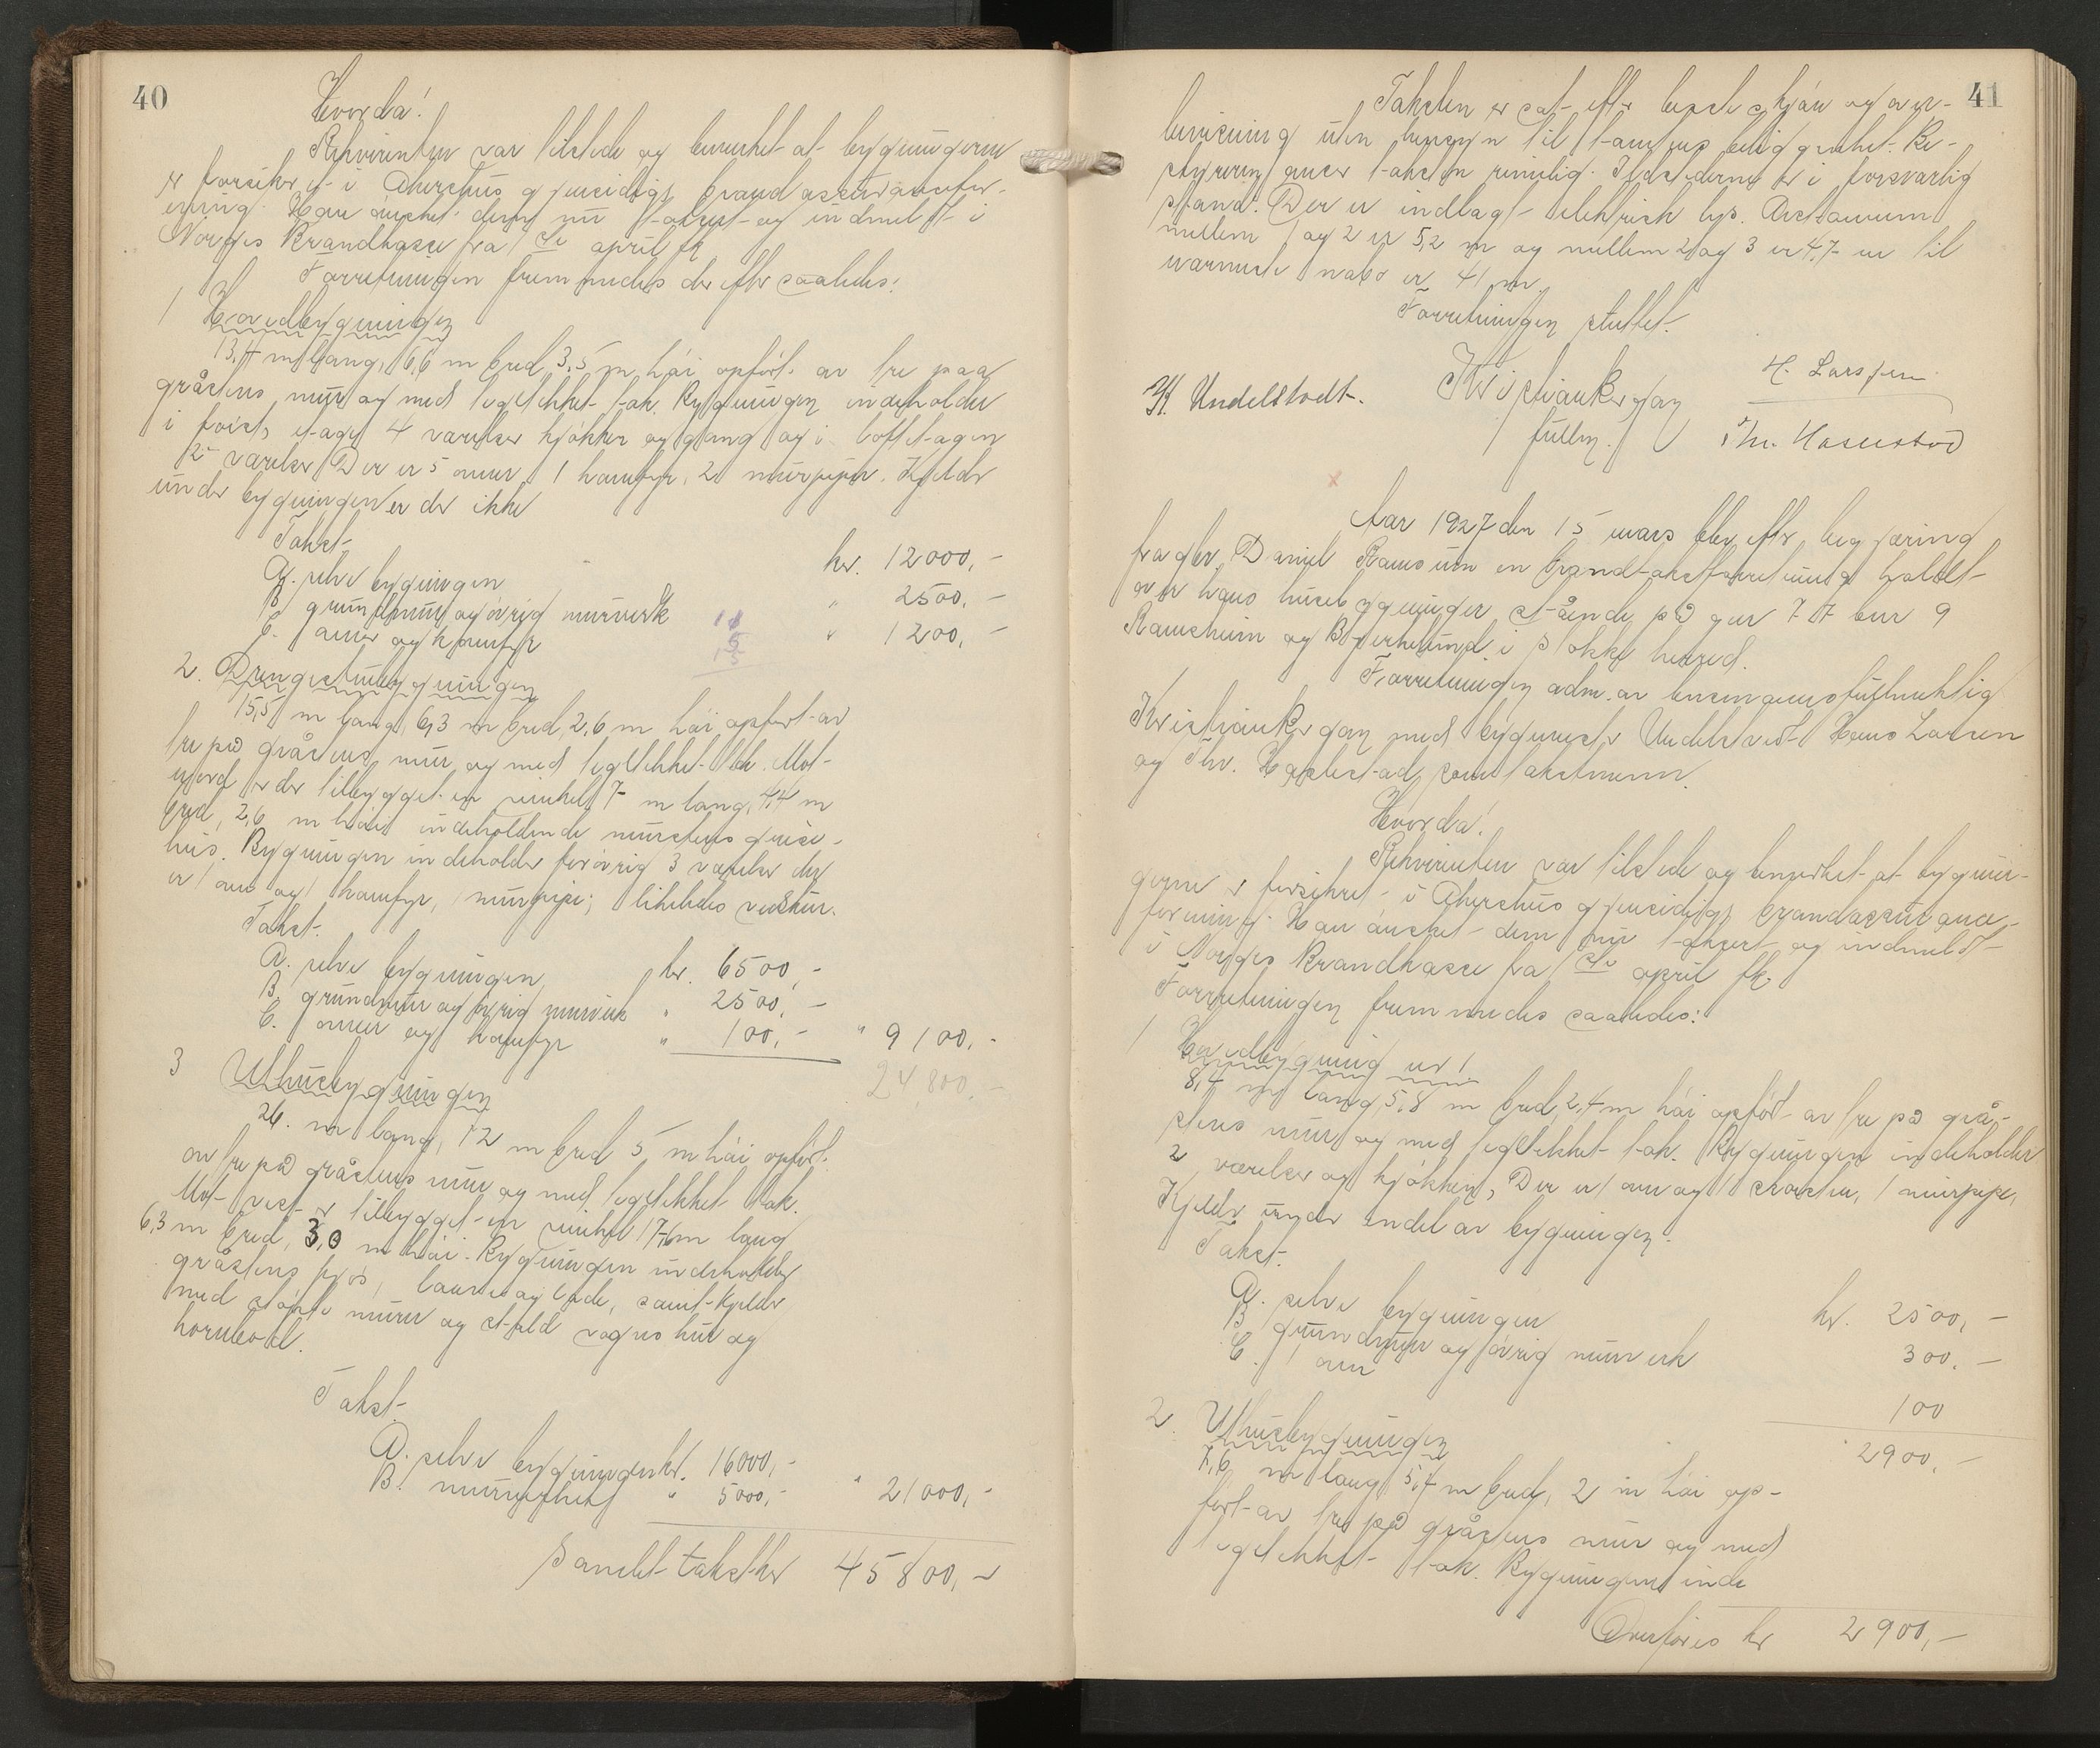 40
Hvorda!
Rekvirenten var tilstede og bemerket at bygningerne
er forsikret i Akershus gjensidige brandassuranсefor-
ening. Han ønsket dem nu taksert og indmeldt i
Norges Brandkasse fra 1ste april
Forretningen fremmedes derefter saaledes:
1 Hovedbygningen
13,4 m lang, 6,6 m bred 3,5 m høi opført av tre paa
gråstens mur og med teglthket tak. Bygningen indeholder
i første etage 4 værelser kjøkken og gang og i loftetagen
2 værelser Der er 5 ovner 1 komfyr, 2 murpiper. Kjelder
under bygningen er der ikke
Takst
A. selve bygningen kr. 12000,-
B. grundmur og øvrig murverk " 2500,-
C. ovner og komfyr " 1200,-
2. Drengestubygningen
15,5 m lang, 6,3 m bred, 2,6 m høi opført av
tre på gråstens mur og med tegltekket tak. Mot
nord er der tilbygget en vinkel 7 m lang, 4,4 m
bred, 2,6 m høi indeholdende murstens grise-
hus. Bygningen indeholder forøvrig 3 værelser der
er 1 ovn og 1 komfyr, 1 murpipe; likeledes vedskur.
Takst.
A. selve bygningen kr. 6500,-
B. grundmur og øvrig murverk " 2500,-
C. ovner og komfyr " 100,- " 9100,-
24,800,-
3 Uthusbygningen
26. m lang, 12 m bred 5 m høi opført
av tre på gråstens mur og med tegltekket tak.
Mot vest er tilbygget en vinkel 17,6 m lang
6,3 m bred, 3,0 m høi. Bygningen indeholder
gråstens fjøs, laave og lade, samt kjelder
med støpte murer og stald vognskur og
kornbod.
Takst.
A. selve bygningen kr. 16000,-
B. murverket " 5000,- " 21000,-
Samlet takst kr 45800,-
41
Taksten er sat efter beste skjøn og over-
bevisning uten hensyn til tomtens beliggenhet. Be-
styreren anser taksten rimelig. Ildstederne er i forsvarlig
stand. Der er indlagt elektrisk lys. Avstanden
mellem 1 og 2 er 5,2 m og mellem 2 og 3 er 4,7 m til
nærmeste nabo er 41 m.
Forretningen sluttet.
H. Undelstvedt. Kristian Bergan H. Larssen
fullm. Thv. Haslestad
Aar 1927 den 15 mars blev efter begjæring
fra gbr. Daniel Ramsum en brandtakstforretning holdt
over hans husebygninger stående på gnr 77 bnr 9
Ramsheim og Bjerkelund i Stokke herred.
Forretningen adm. av lensmannsfullmektig
Kristian Bergan med bygmester Undelstvedt Hans Larsen
og Thv. Haslestad som takstmenn.
Hvorda!
Rekvirenten var tilstede og bemerket at bygnin-
gerne er forsikret i Akershus gjensidige brandassurance-
forening. Han ønsket dem nu taksert og indmeldt
i Norges Brandkasse fra 1ste april
Forretningen fremmedes saaledes:
1 Hovedbygning nr 1
8,4 m lang 5,8 m bred 2,4 m høi opført av tre på grå-
stens mur og med tegltekket tak. Bygningen indeholder
2 værelser og kjøkken, Der er 1 ovn og 1 skorsten, 1 murpipe,
Kjelder under endel av bygningen.
Takst.
A. selve bygningen kr. 2500,-
B grundmur og øvrig murverk 300,-
C. 1 ovn 100
2900,-
2. Uthusbygningen
7,6 m lang 5,4 m bred, 2 m høi op-
ført av tre på gråstens mur og med
tegltekket tak. Bygningen inde
Overføres kr 2900,-